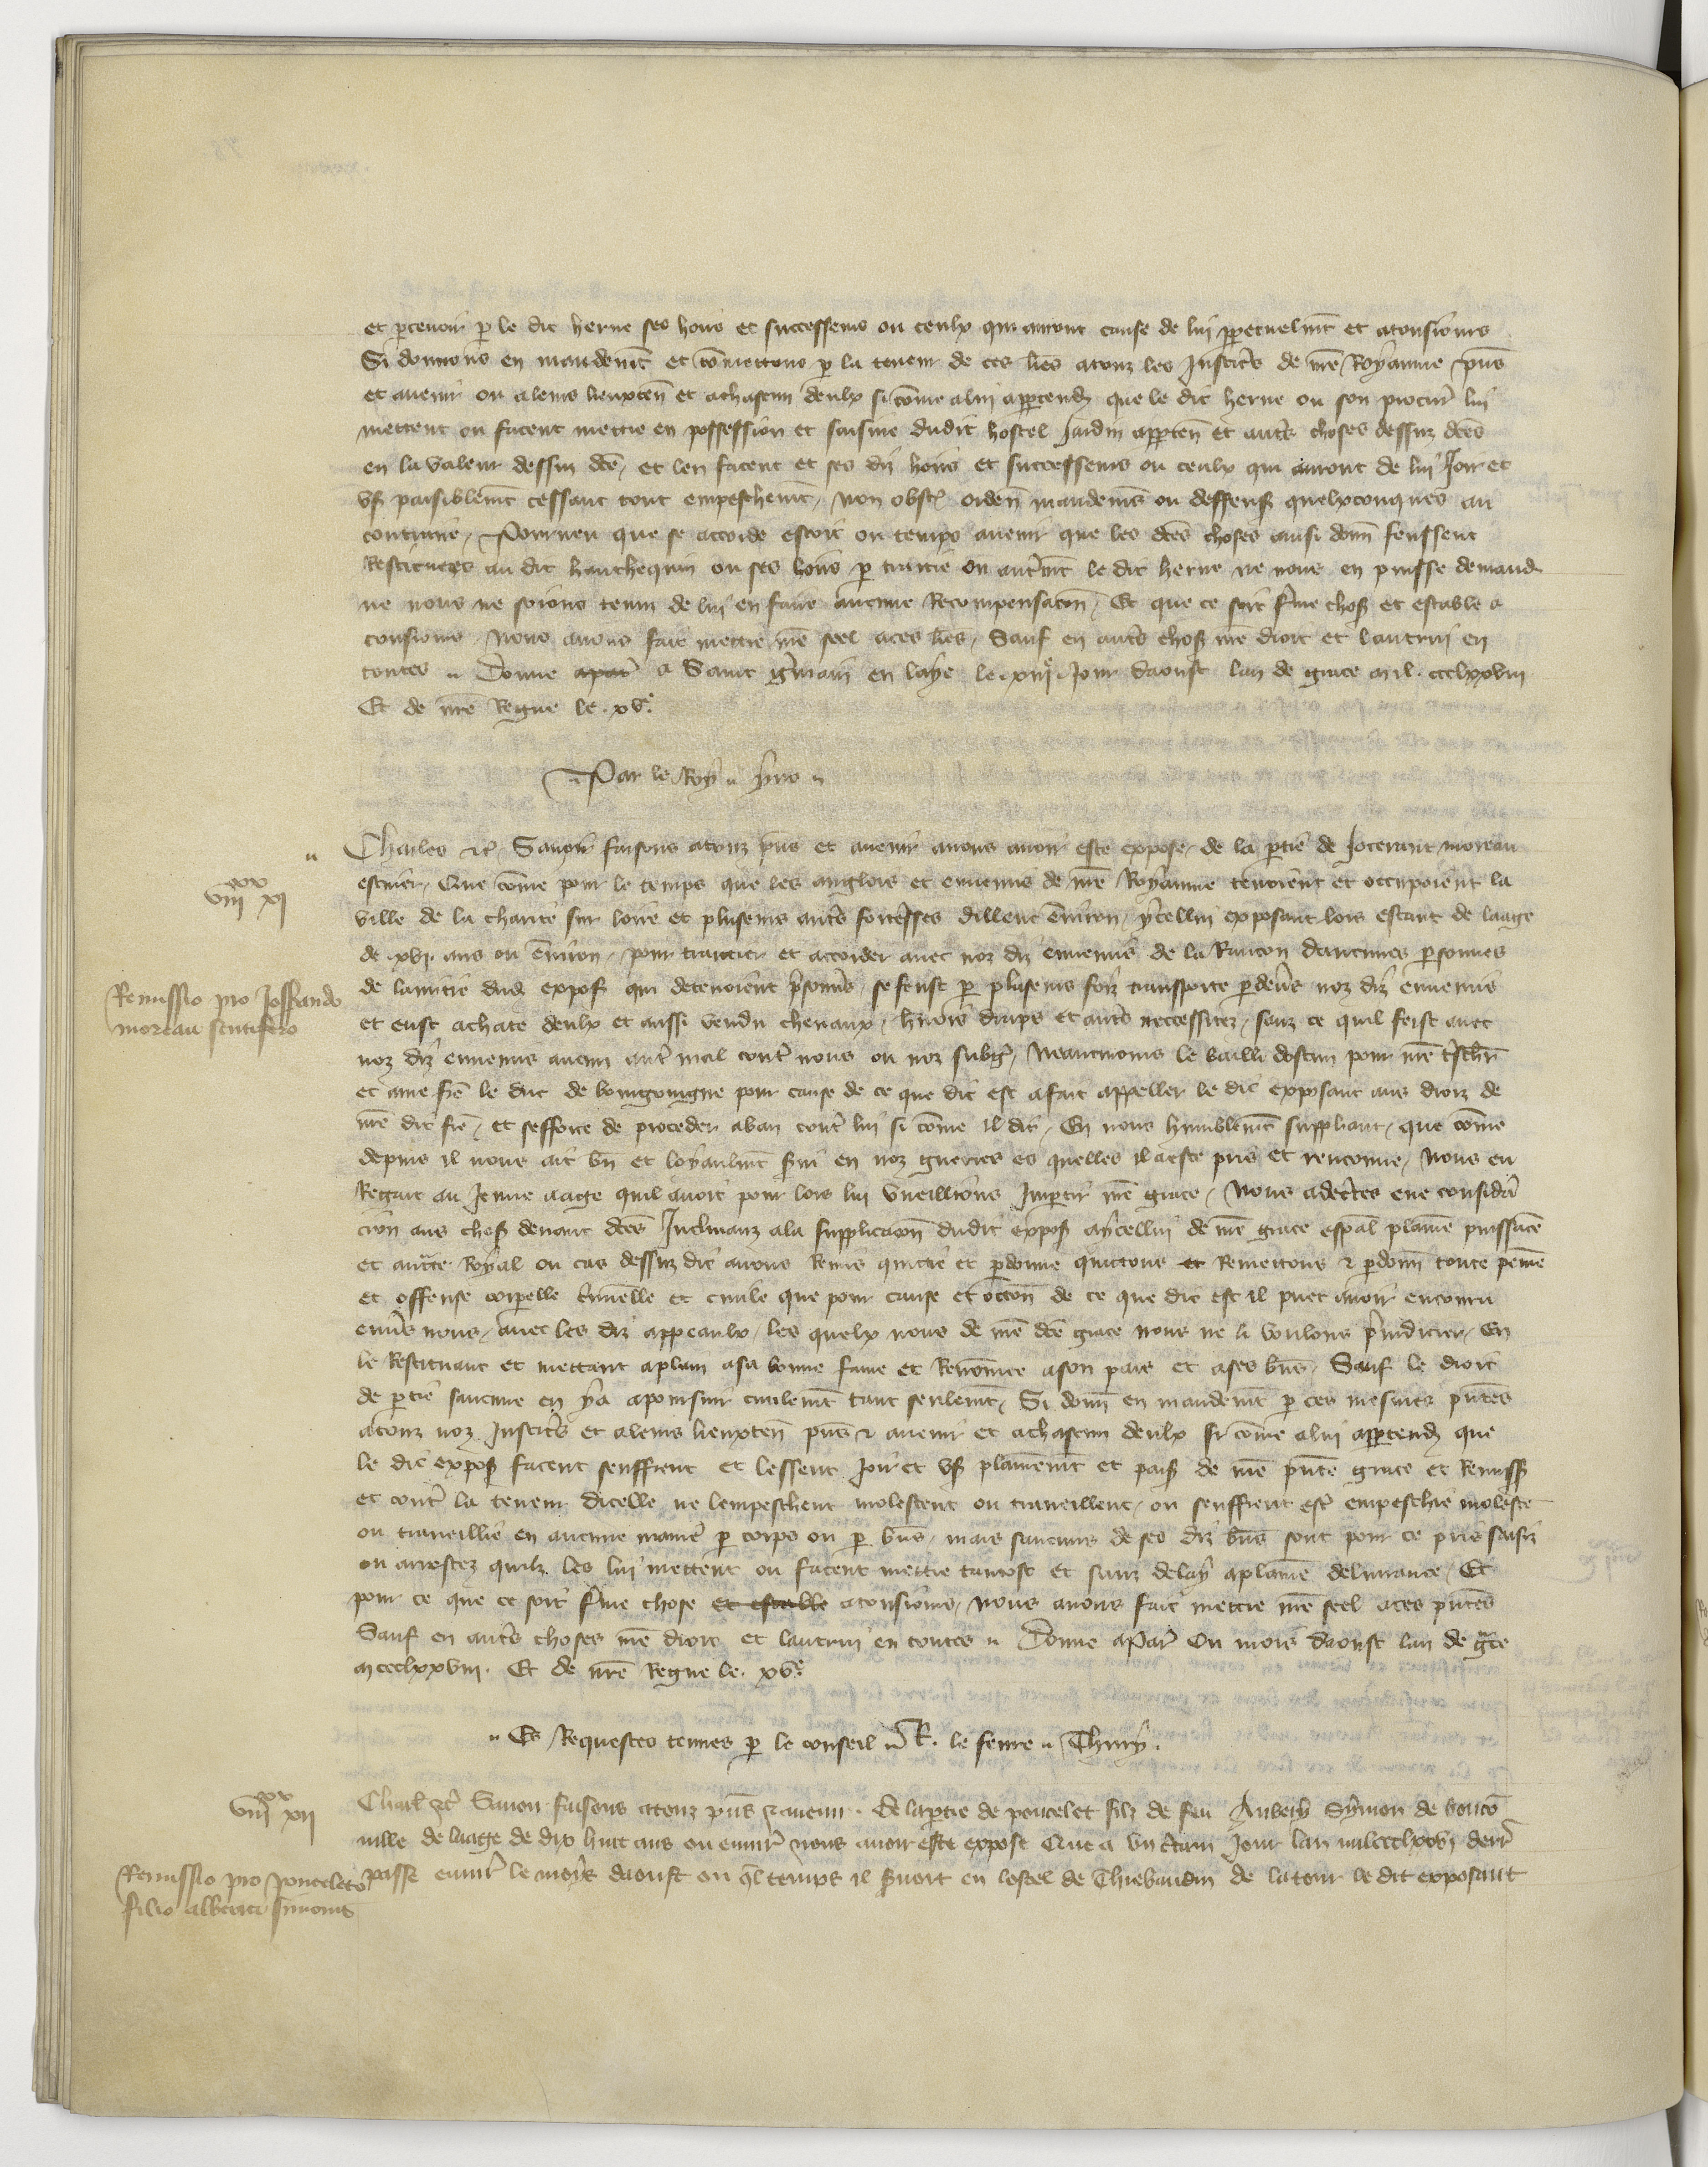 et p̄cevoir p̄ le dit herne ses hoirs et successeurs ou ceulx qui auront cause de lui p̄petuelmt̄ et a tousiours
Si donnons en mandemt̄ et cōmettons p̄ la teneur de ces lr̄es a touz les Justic̄s de nr̄e Royaume pn̄s
et avenir ou a leurs lieuxten̄ et a chascun deulx si cōme a lui app̄tendr̄ que le dit herne ou son procur̄ lui
mettent ou facent mettre en possession et saisine dudit hostel Jardin app̄ten̄ et autr̄s choses dessuz dc̄es
en la valeur dessuz dc̄e, et len facent et ses diz hoirs et successeurs ou ceulx qui auront de lui Joir et
us̄ paisiblemt̄ cessant tout empeschemt̄, Non obst̄ orden̄ mandemēs ou deffens̄ quelxconques au
contraire, Pourveu que se accorde estoit ou temps avenir que les dc̄es choses ainsi donn̄ feussent
Restituees au dit hanchequin ou ses hoirs p̄ traitie ou autr̄mt̄ le dit herne ne nous en puisse demand̄
ne nous ne soions tenuz de lui en faire aucune Recompensac̄on, Et que ce soit fr̄me chos̄ et estable a
tousiours, Nous avons fait mettre nr̄e seel a ces lr̄es, Sauf en autr̄s chos̄ nr̄e droit et lautrui en
toutes Donne apar̄ a Saint gr̄main en laye le xiiie Jour daoust lan de grace mil ccclxxviii
Et de nr̄e Regne le xve
Par le Roy yvo
Charles etc̄ Savoir faisons a touz pn̄s et avenir a nous avoir este expose, de la p̄tie de Jocerant moreau
viiixx xi
escuier, Que cōme pour le temps que les anglois et ennemis de nr̄e Royaume tenoient et occupoient la
ville de la charite sur loire et pluseurs autr̄s fort̄esses dillenc ēnviron, ycellui exposant lors estant de laage
de xvi ans ou ēnviron, pour traictier et accorder avec noz diz ennemis de la Rancon daucunes p̄sonnes
Remissio pro Josserando
moreau scutifero
de lamitie dud̄ expos̄ qui detenoient pr̄sonn̄s, se feust p̄ pluseurs foiz transporte p̄devr̄s noz diz ennemis
et eust achate deulx et aussi vendu chevaux, harnois draps et autr̄s neccessitez, sanz ce quil feist avec
noz diz ennemis aucun autr̄ mal contr̄ nous ou noz subgr̄, Neantmoins le bailli dostun pour nr̄e tr̄scher̄
et ame fr̄e le duc de bourgoingne pour cause de ce que dit est a fait appeller le dit exposant aus droiz de
nr̄e dit fr̄e, et sefforce de proceder a ban contr̄ lui si cōme il dit, En nous humblemt̄ suppliant, que cōme
depuis il nous ait bn̄ et loyaulmt̄ s̄vi en noz guerres es quelles il a este pris et renconne, Nous eu
Regart au Jeune aage quil avoit pour lors lui vueillions Imp̄tir nr̄e grace, Nous adc̄ertes eue considr̄a
cion aus chos̄ devant dc̄es Inclinanz a la supplicac̄on dudit expos̄ a ycellui de nr̄e grace esp̄al plaine puissāce
et auctr̄te Royal ou cas dessuz dit avons Remis quictie et p̄donne quictons et Remettons et p̄donn̄ toute peine
et offense corp̄elle cr̄minelle et civile que pour cause et occ̄on de ce que dit est il puet avoir encouru
envr̄s nous, avec les diz appeaulx, les quelx nous de nr̄e dc̄e grace nous ne li voulons pr̄iudicier, En
le Restituant et mettant a plain a sa bonne fame et Renōmee a son pais et a ses bn̄s, Sauf le droit
de p̄tie saucune en y a a poursuir civilemt̄ tant seulemt̄, Si donn̄ en mandemt̄ p̄ ces mesmes pn̄tes
a touz noz Justic̄s et a leurs lieuxten̄ pn̄s et avenir et a chascun deulx si cōme a lui app̄tendr̄ que
le dit expos̄ facent seuffrent et lessent Joir et us̄ plainemt̄ et pais̄ de nr̄e pn̄te grace et Remiss̄
et contr̄ la teneur dicelle ne lempeschent molestent ou traveillent, ou seuffrent estr̄ empeschie moleste
ou traveillie en aucune manier̄ p̄ corps ou p̄ bn̄s, mais saucuns de ses diz bn̄s sont pour ce pris saisiz
ou arrestez quilz les lui mettent ou facent mettre tantost et sanz delay a plaine delivrance, Et
pour ce que ce soit fr̄me chose et estable a tousiours, Nous avons fait mettre nr̄e seel a ces pn̄tes
Sauf en autr̄s choses nr̄e droit et lautrui en toutes Donne a Par̄ Ou mois daoust lan de gr̄ce
mccclxxviii. Et de nr̄e Regne le xve
Es Requestes tenues p̄ le conseil R. le fevre Thury.
viiixx xii
Charl̄ etc̄ Savoir faisons a touz pn̄s et avenir. De la p̄tie de poncelet filz de feu Aubery Symon de bouco
ville de laage de dix huit ans ou envir̄ nous avoir este expose Que a un c̄tain Jour lan mil ccclxxvi derr̄
Remissio pro ponceleto
filio alberici simonis
passe envir̄ le moys daoust ou ql̄ temps il s̄voit en lostel de Thiebaudin de la tour le dit exposant